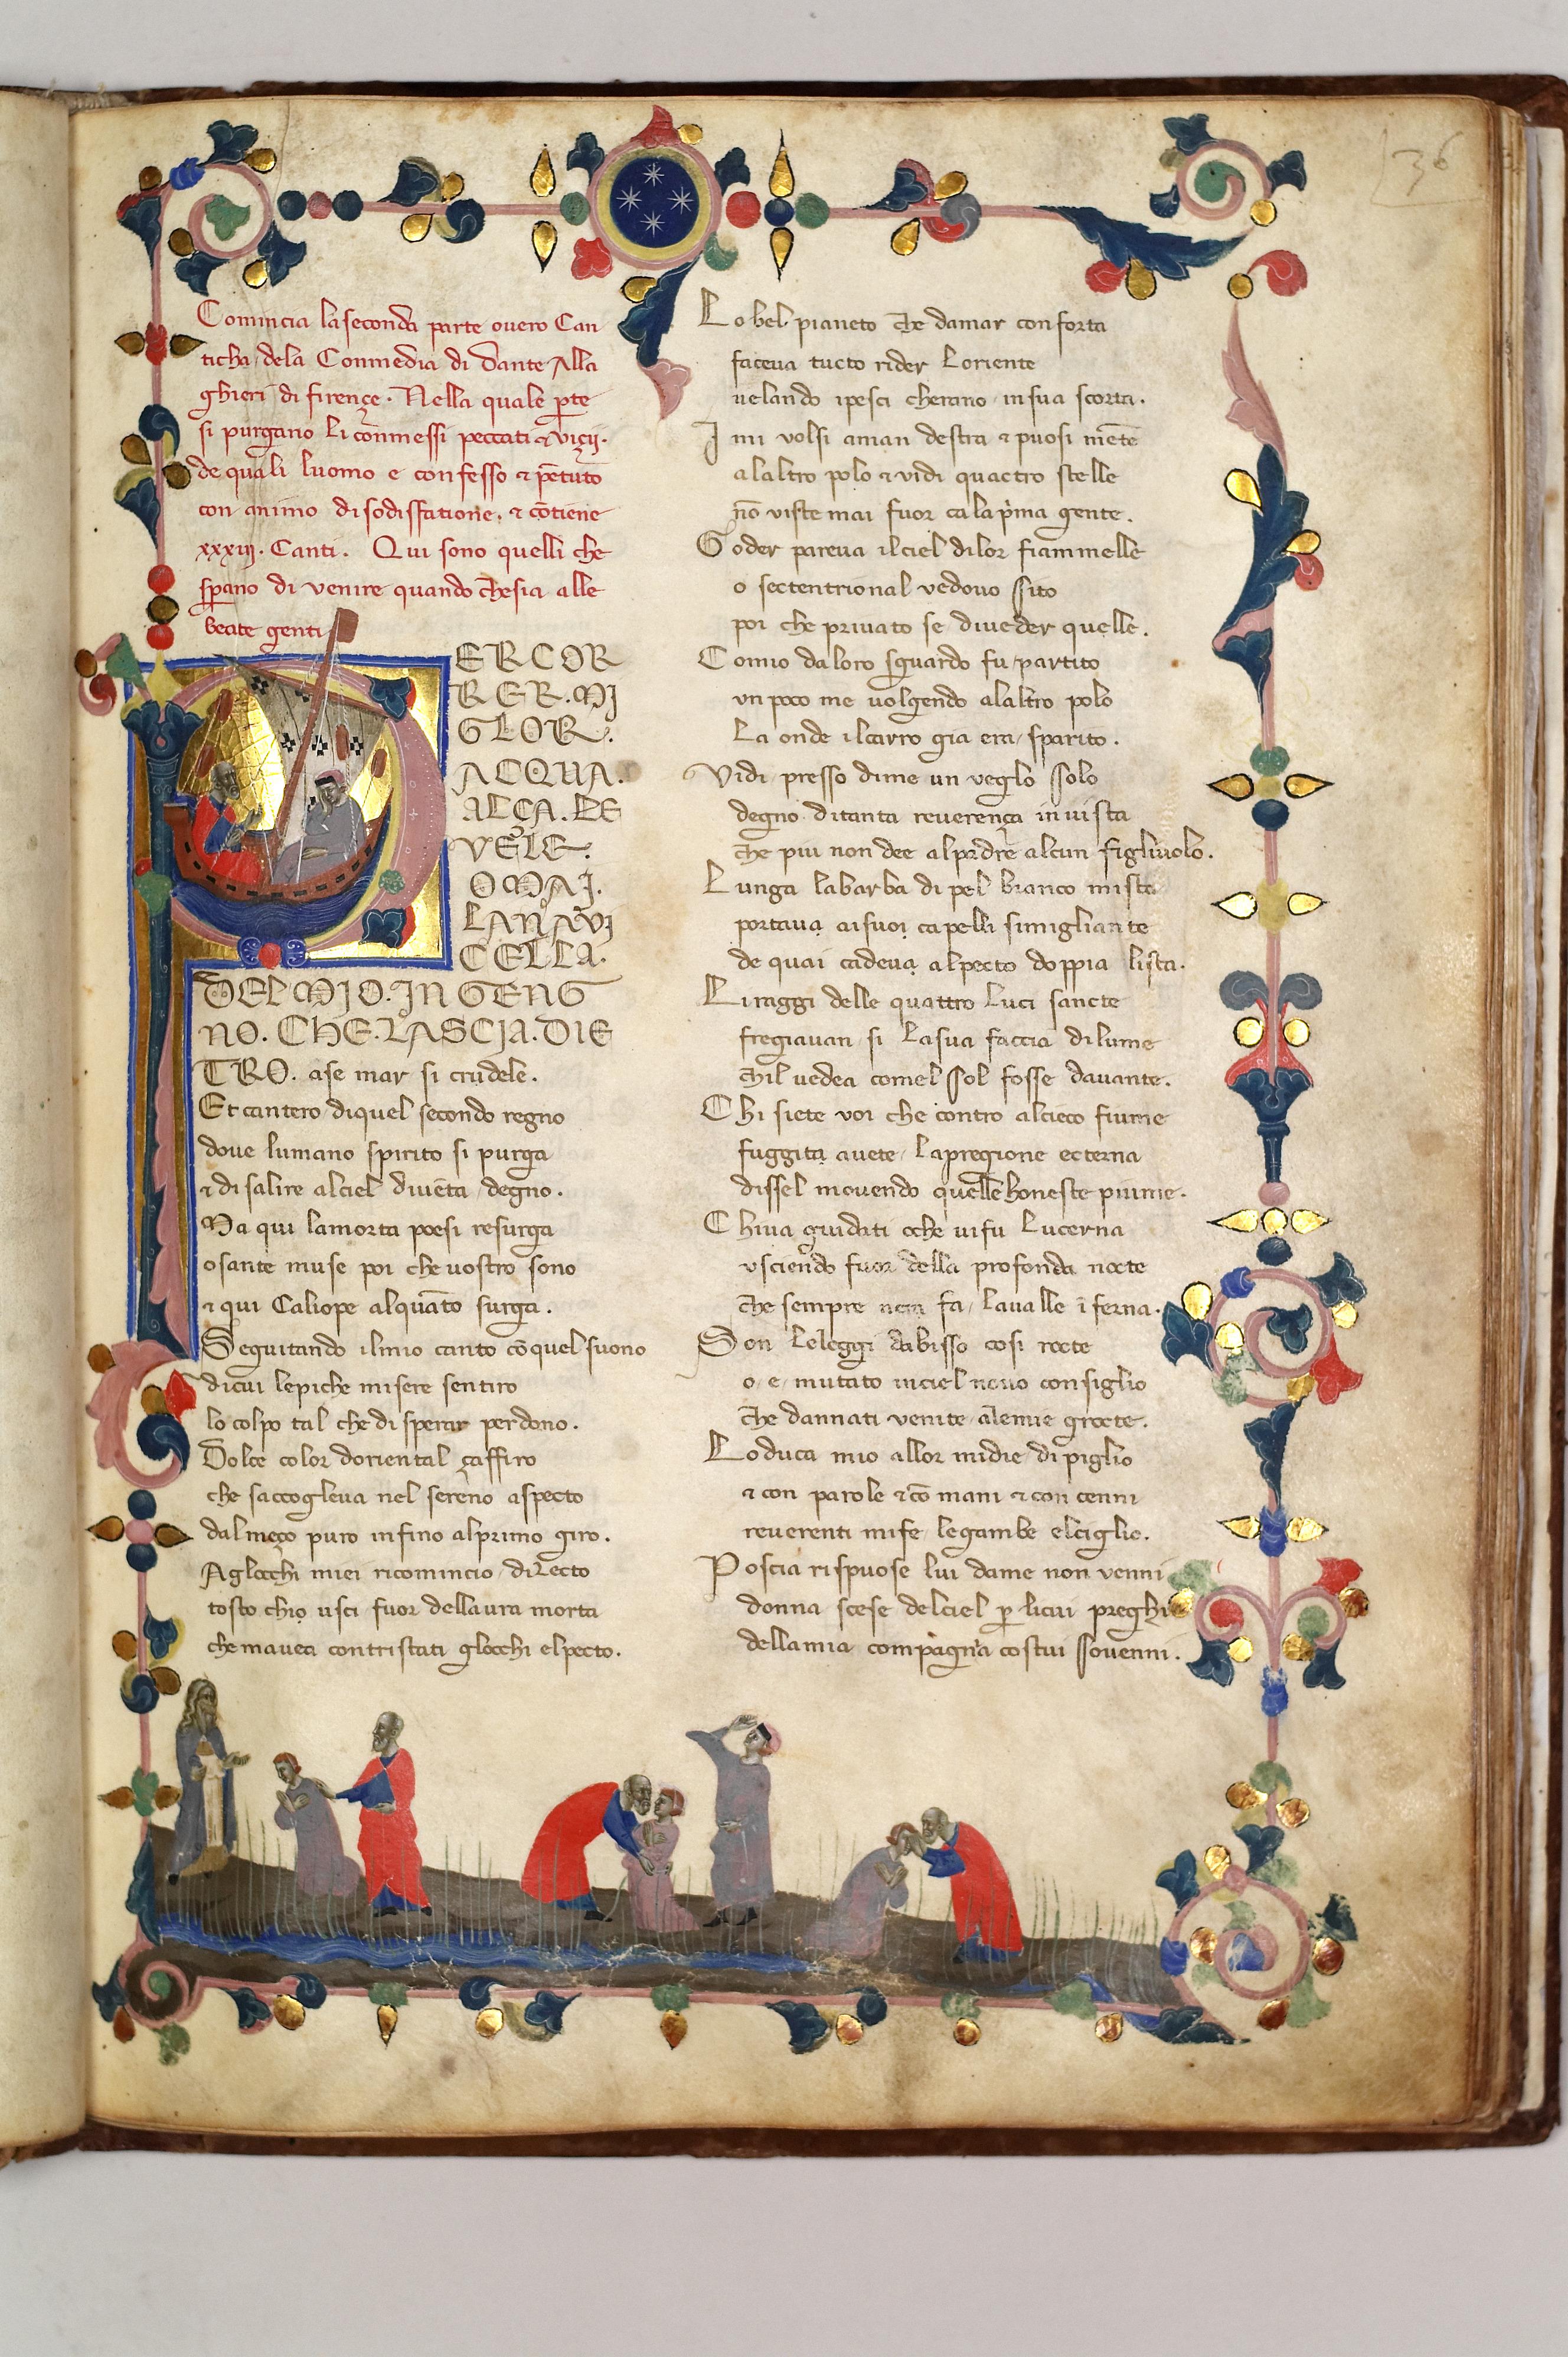 36
Comincia la seconda parte overo Can
ticha dela Conmedia di Dante Alla
ghieri di firençe. Nella quale pte
si purgano li conmessi peccati & viçii.
de quali luomo e confesso & pētuto
con animo di sodisfatione. & cōtiene
xxxiij. Canti. Qui sono quelli che
sperano di venire quando che sia alle
beate genti
P ER COR
RER. MI
GLOR.
ACQUA.
ALÇA. LE
VELE.
OMAI.
LA NAVI
CELLA.
DEL MIO. INGENG
NO. CHE. LASCIA. DIE
TRO. a se mar si crudele.
Et cantero di quel secondo regno
dove lumano spirito si purga
& di salire al ciel divēta degno.
Ma qui la morta poesi resurga
o sante muse poi che vostro sono
& qui Caliope alquāto surga.
Seguitando il mio canto cō quel suono
di cui le piche misere sentiro
lo colpo tal che disperar perdono.
Dolce color doriental çaffiro
che saccogleva nel sereno aspecto
dal meço puro infino al primo giro.
Aglocchi miei ricomincio dilecto
tosto chio usci fuor dellaura morta
che mavea contristati glocchi el pecto.
Lo bel pianeto che damar conforta
faceva tucto rider loriente
velando i pesci cherano in sua scorta.
I mi volsi a man destra & puosi mēte
a laltro polo & vidi quactro stelle
nō viste mai fuor ca la pima gente.
Goder pareva il ciel di lor fiammelle
o sectentrional vedovo sito
poi che privato se di veder quelle.
Comio da loro sguardo fu partito
un poco me volgendo a laltro polo
la onde il carro gia era sparito.
Vidi presso di me un veglo solo
degno di tanta reverença in vista
che piu non dee al padre alcun figliuolo.
Lunga la barba di pel bianco mista
portava ai suoi capelli simigliante
de quai cadeva al pecto doppia lista.
Li raggi delle quattro luci sancte
fregiavan si la sua faccia di lume
chil vedea comel sol fosse davante.
Chi siete voi che contro al cieco fiume
fuggita avete la pregione ecterna
dissel movendo quelle honeste piume.
Chi va guidati o che vi fu lucerna
uscendo fuor della profonda nocte
che sempre nera fa la valle īferna.
Son le leggi dabisso cosi rocte
o e mutato in ciel novo consiglio
che dannati venite a le mie grocte.
Lo duca mio allor mi die di piglio
& con parole & cō mani & con cenni
reverenti mi fe le gambe el ciglio.
Poscia rispuose lui da me non venni
donna scese del ciel p li cui preghi
della mia compagna costui sovenni.